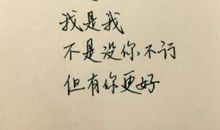 我是我
不是没你不行
但有你更好